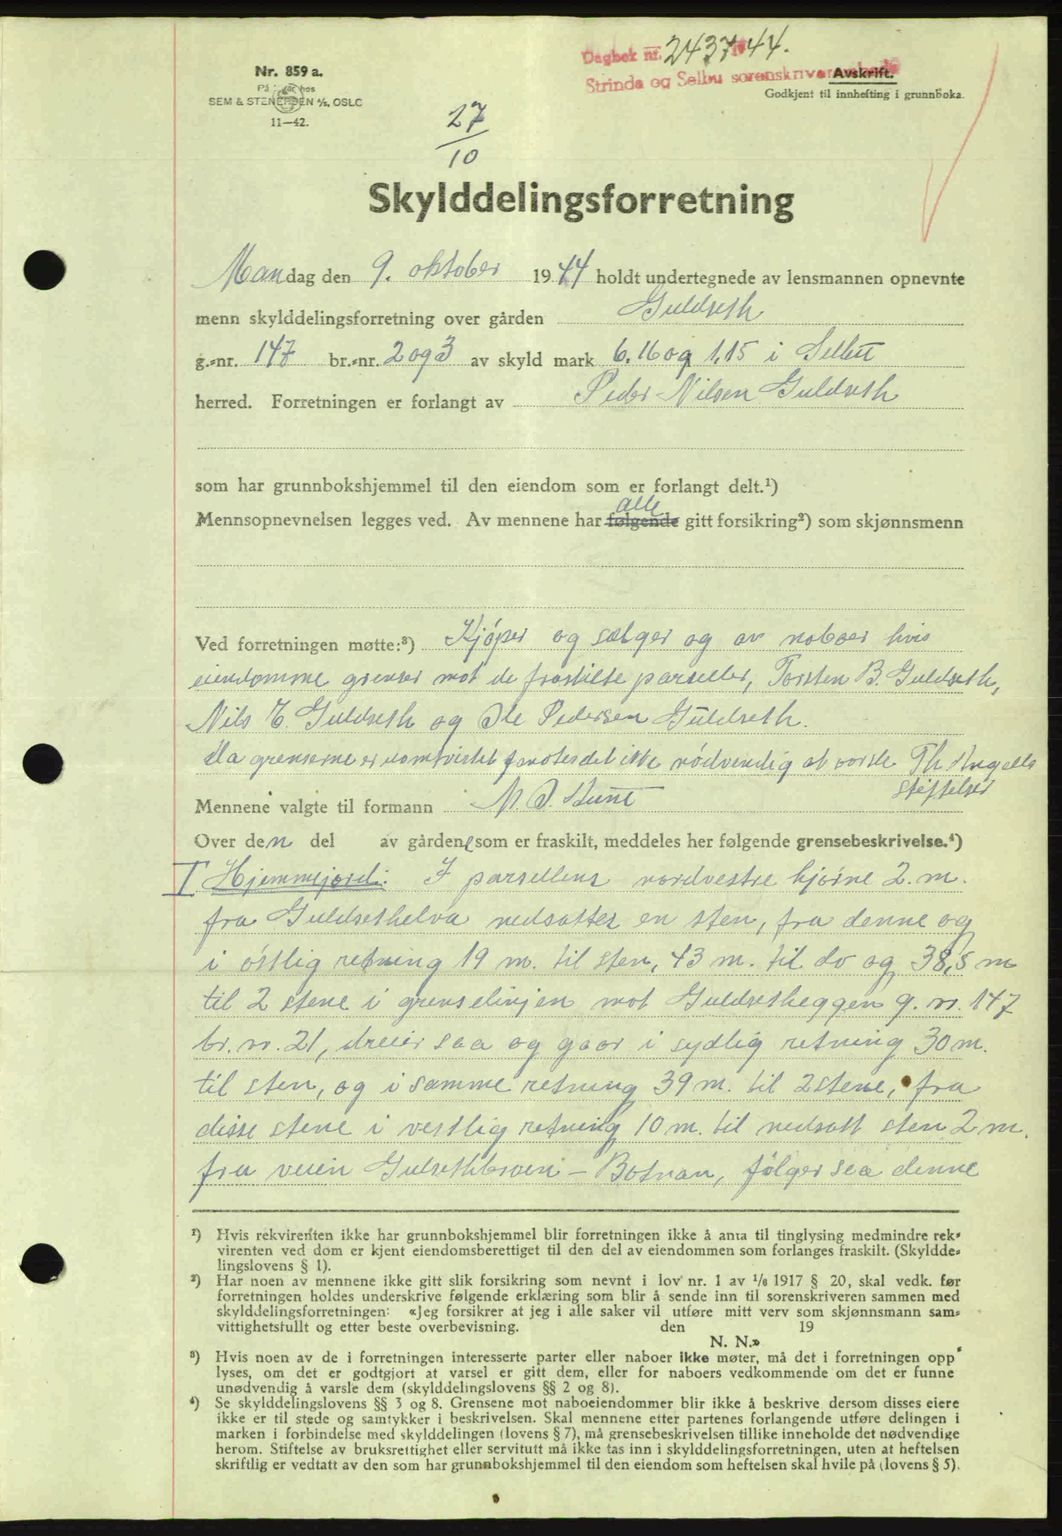 Nr. 859 a.
På lager hos
SEM & STENERSEN A/S, OSLO
11—42.
Dagbok nr. 2437 1944.
Strinda og Selbu sorenskriverembede
Avskrift.
Godkjent til innhefting i grunnboka.
27
10
Skylddelingsforretning
Mandag den 9. oktober 1944 holdt undertegnede av lensmannen opnevnte
menn skylddelingsforretning over gården Guldseth
g.-nr. 147 br.-nr. 2 og 3 av skyld mark 6,16 og 1,15 i Selbu
herred. Forretningen er forlangt av Peder Nilsen Guldseth
som har grunnbokshjemmel til den eiendom som er forlangt delt.¹)
alle
Mennsopnevnelsen legges ved. Av mennene har følgende gitt forsikring²) som skjønnsmenn
Ved forretningen møtte:³) Kjøper og sælger og av naboer hvis
eiendomme grenser mot de fraskilte parseller, Torsten B. Guldseth,
Nils E. Guldseth og Ole Pedersen Guldseth.
Da grenserne er uomtvistet fantes det ikke nødvendig at varsle Th. Angells
stiftelser
Mennene valgte til formann
Over den del av gården som er fraskilt, meddeles her følgende grensebeskrivelse.⁴)
I Hjemmejord: I parsellens nordvestre hjørne 2. m.
fra Guldsethelva nedsattes en sten, fra denne og
i østlig retning 19 m. til sten, 43 m. til do og 38,5 m
til 2 stene i grenselinjen mot Guldsetheggen g. nr. 147
br. nr. 21, dreier saa og gaar i sydlig retning 30 m.
til sten, og i samme retning 39 m. til 2 stene, fra
disse stene i vestlig retning 10 m. til nedsatt sten 2 m.
fra veien Gulsethbroen – Botnan, følger saa denne
¹) Hvis rekvirenten ikke har grunnbokshjemmel blir forretningen ikke å anta til tinglysing medmindre rek-
virenten ved dom er kjent eiendomsberettiget til den del av eiendommen som forlanges fraskilt. (Skyldde-
lingslovens § 1).
²) Har noen av mennene ikke gitt slik forsikring som nevnt i lov nr. 1 av 1/6 1917 § 20, skal vedk. før
forretningen holdes underskrive følgende erklæring som blir å sende inn til sorenskriveren sammen med
skylddelingsforretningen: «Jeg forsikrer at jeg i alle saker vil utføre mitt verv som skjønnsmann sam-
vittighetsfullt og etter beste overbevisning. den 19
N. N.»
³) Hvis noen av de i forretningen interesserte parter eller naboer ikke møter, må det i forretningen opp
lyses, om det er godtgjort at varsel er gitt dem, eller for naboers vedkommende om det er funne
unødvendig å varsle dem (skylddelingslovens §§ 2 og 8).
⁴) Se skylddelingslovens §§ 3 og 8. Grensene mot naboeiendommer blir ikke å beskrive dersom disses eiere
ikke er til stede og samtykker i beskrivelsen. Skal mennene etter partenes forlangende utføre delingen i
marken i forbindelse med skylddelingen (lovens § 7), må grensebeskrivelsen tillike inneholde det nødvendige
herom. Stiftelse av bruksrettighet eller servitutt må ikke tas inn i skylddelingsforretningen, uten at heftelsen
skriftlig er vedtatt av den som har grunnbokshjemmel til den eiendom som heftelsen skal hvile på (lovens § 5).